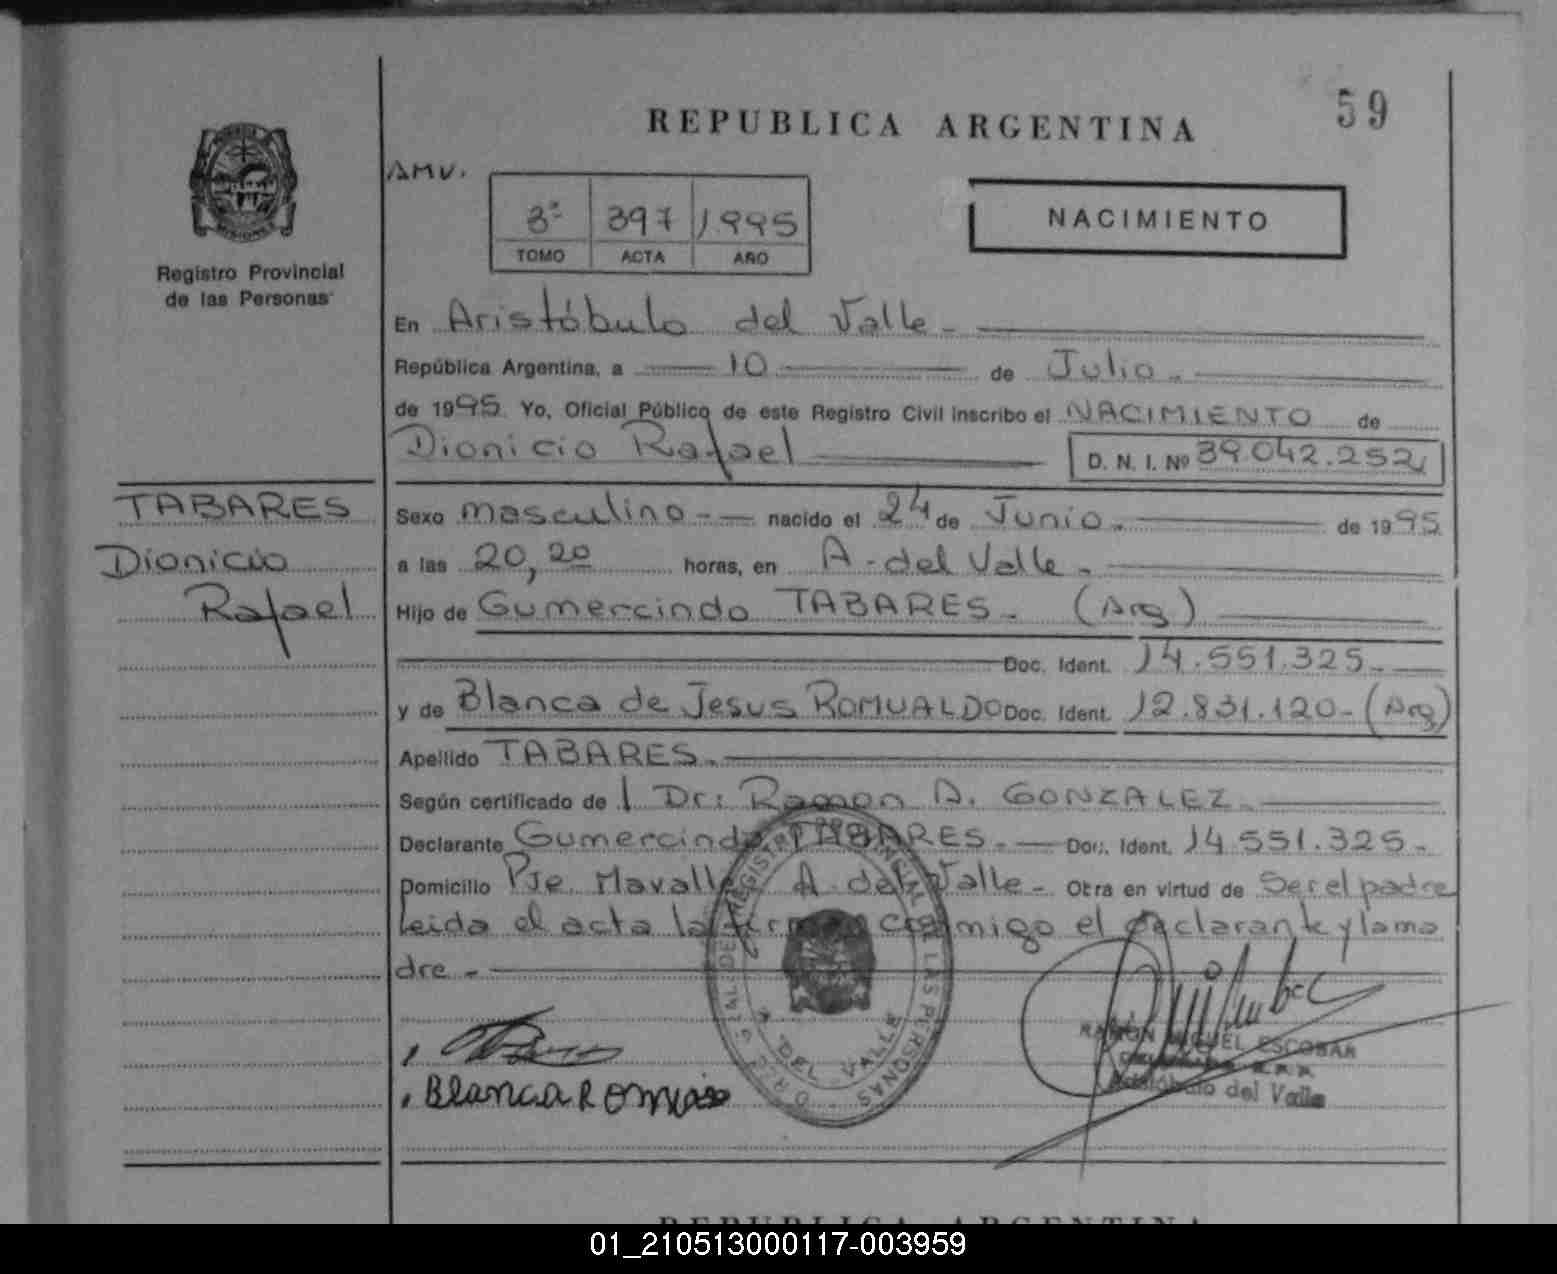 59
REPUBLICA ARGENTINA
AMV.
3º 397 1995
TOMO ACTA AÑO
NACIMIENTO
MISIONES
Registro Provincial
de las Personas
En Aristóbulo del Valle.
República Argentina, a 10 de Julio.
de 1995. Yo, Oficial Público de este Registro Civil inscribo el NACIMIENTO de
Dionicio Rafael D. N. I. Nº 39.042.252
TABARES
Dionicio
Rafael
Sexo masculino - nacido el 24 de Junio. de 1995.
a las 20,20 horas, en A. del Valle.
Hijo de Gumercindo TABARES. (Arg)
Doc. Ident. 14.551.325-
y de Blanca de Jesus ROMUALDO Doc. Ident. 12.831.120- (Arg)
Apellido TABARES.
Según certificado de Dr: Ramon A. GONZALEZ.
Declarante Gumercindo TABARES. - Doc. Ident. 14.551.325-
Domicilio Pje. Mavalle A. del Valle - Obra en virtud de Ser el padre
leida el acta la firma conmigo el declarante y la ma
dre -
DEL VALLE
DE LAS PERSONAS
Blanca
RAMON MIGUEL ESCOBAR
Aristóbulo del Valle
REPUBLICA ARGENTINA
01_210513000117-003959